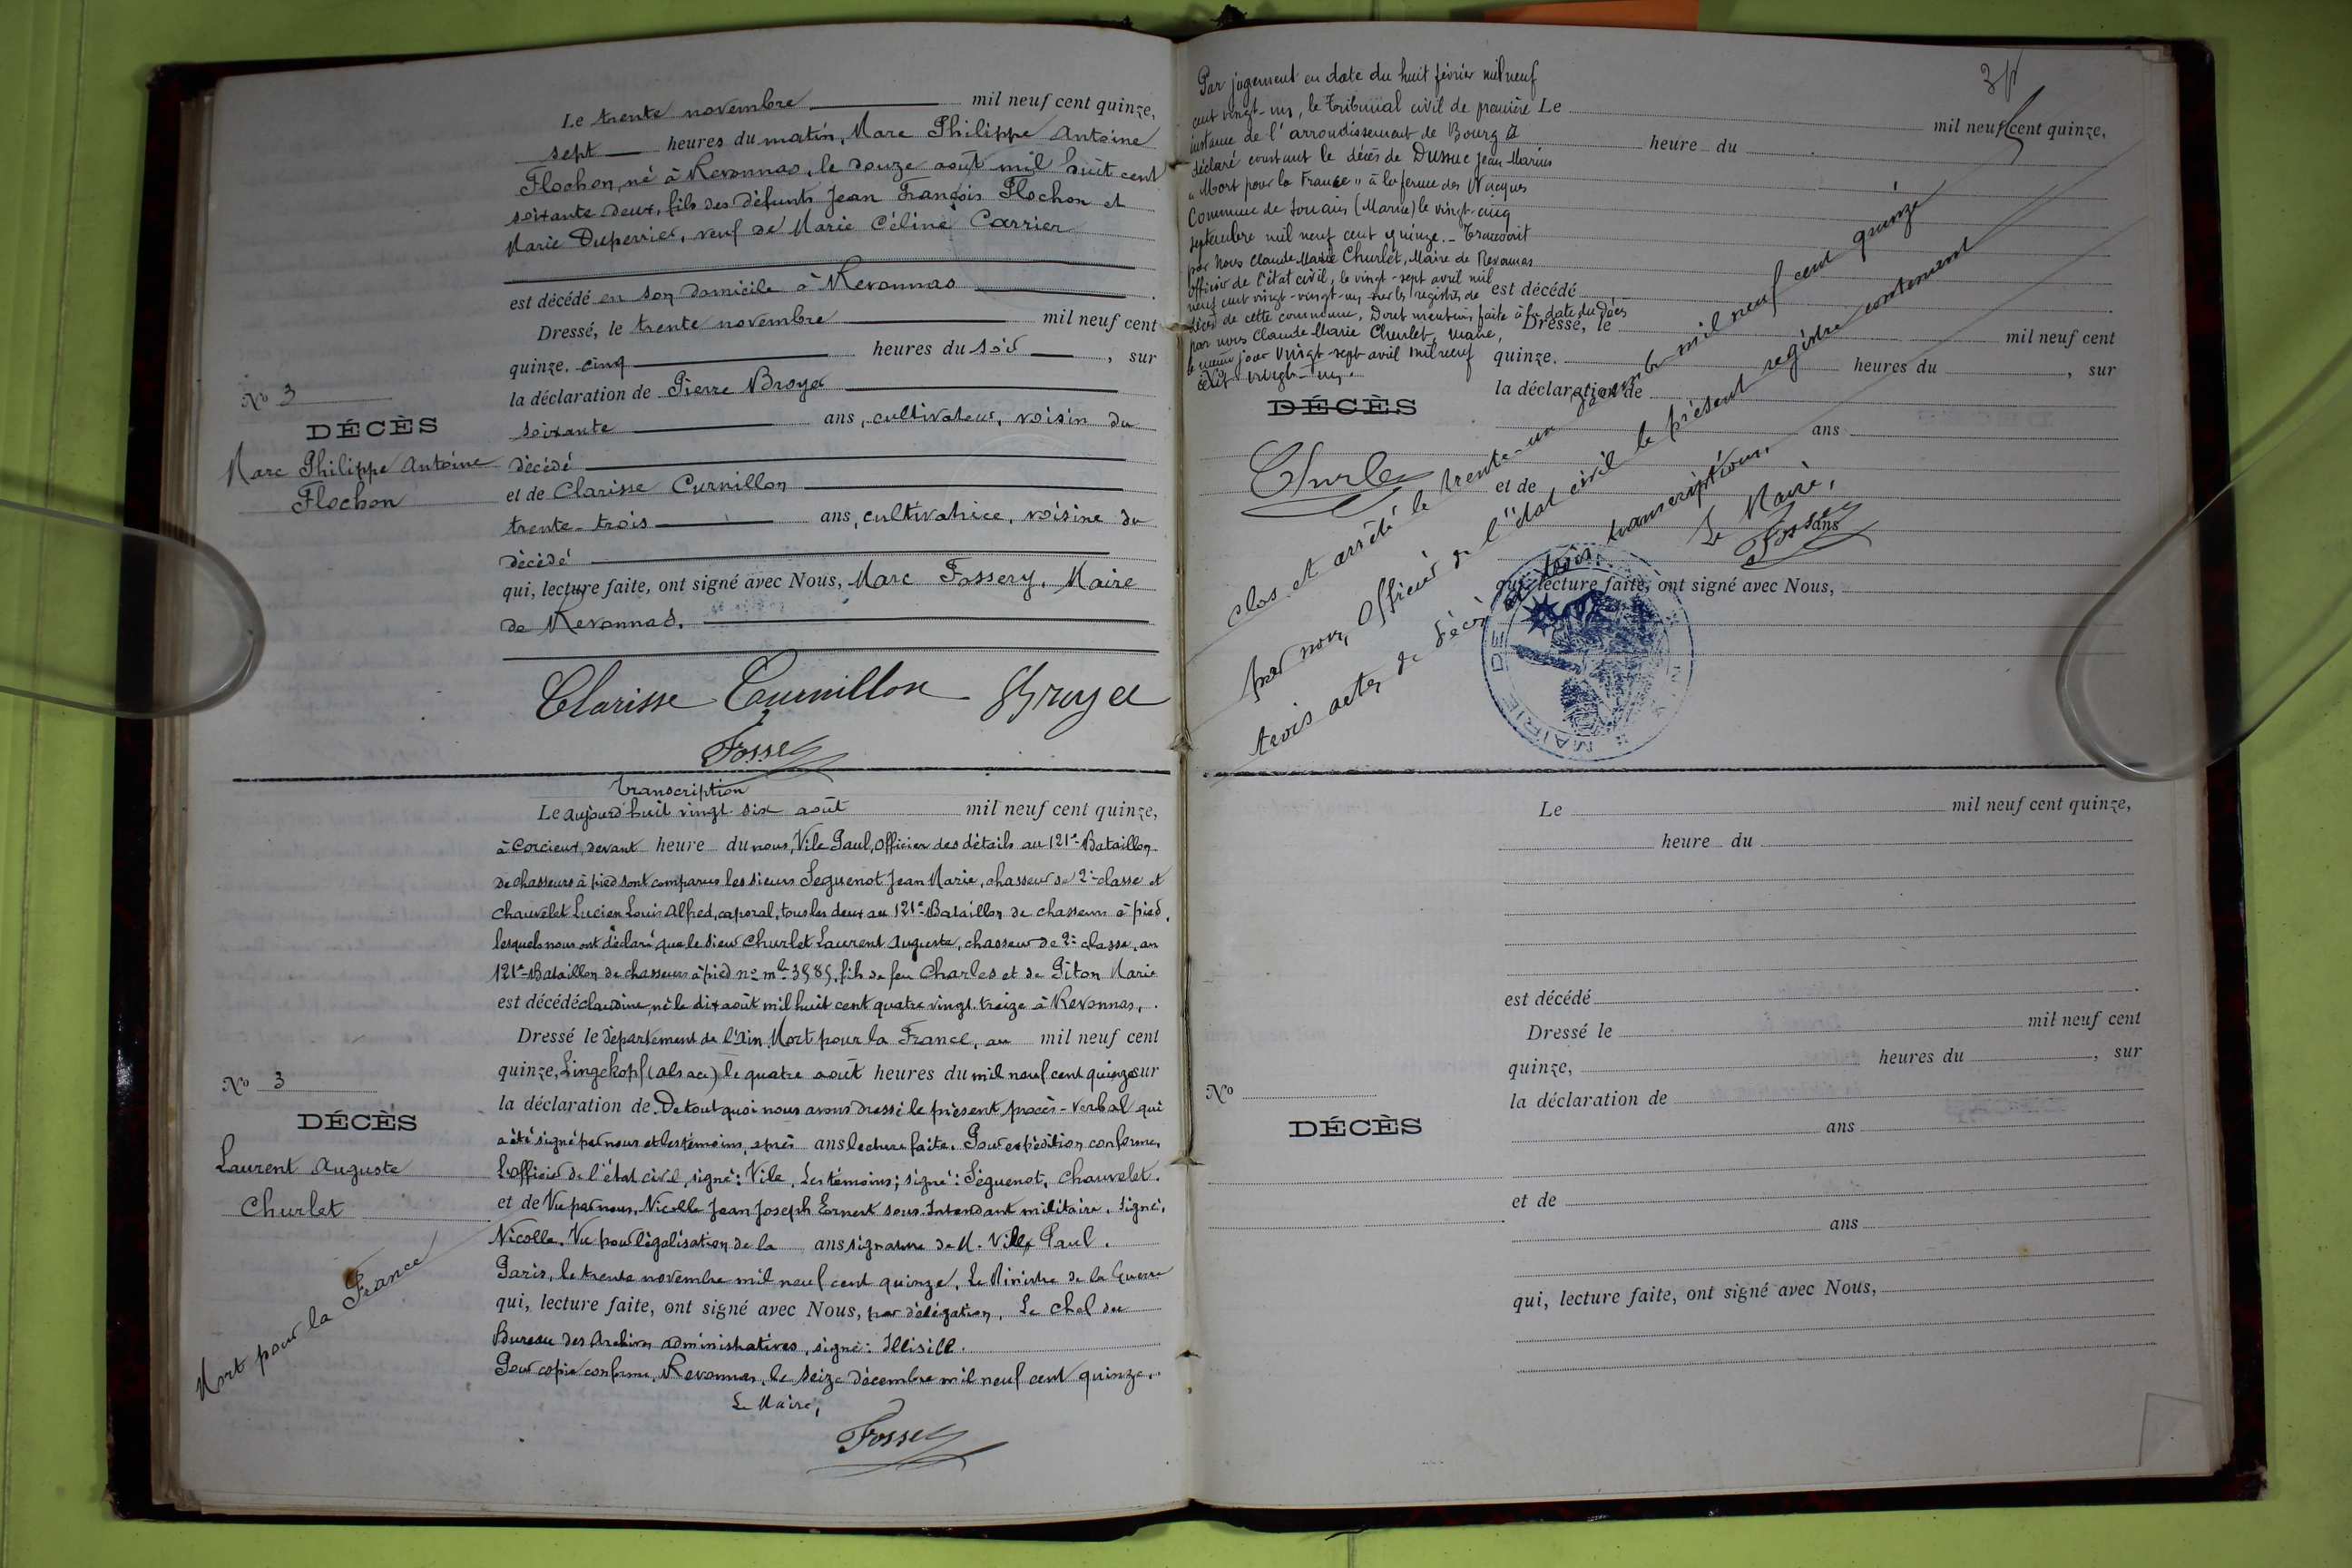 Le trente novembre mil neuf cent quinze,
sept heures du matin, Marc Philippe Antoine
Flochon, né à Revonnas, le douze août mil huit cent
soixante deux, fils des défunts Jean François Flochon et
Marie Duperrier, veuf de Marie Céline Carrier
est décédé en son domicile à Revonnas
Dressé, le trente novembre mil neuf cent
quinze. cinq heures du soir, sur
la déclaration de Pierre Broyer
soixante ans, cultivateur, voisin du
décédé
et de Clarisse Curnillon
trente-trois ans, cultivatrice, voisine du
décédé
qui, lecture faite, ont signé avec Nous, Marc Fossery, Maire
de Revonnas.
No 3
DÉCÈS
Marc Philippe Antoine
Flochon
Clarisse Curnillon Broyer
Transcription
Le aujourd'huit vingt six août mil neuf cent quinze,
à Corcieux, devant heure du nous, Vile Paul, Officier des détails au 121e Bataillon
de chasseurs à pied sont comparus les sieurs Seguenot Jean Marie, chasseur de 2e classe et
Chauvelet Lucien Louis Alfred, caporal, tous les deux au 121e Bataillon de chasseurs à pied,
lesquels nous ont déclaré que le sieur Churlet Laurent Auguste, chasseur de 2e classe, au
121e Bataillon de chasseurs à pied no mle 3585, fils de feu Charles et de Piton Marie
est décédé claudine, né le dix août mil huit cent quatre vingt treize à Revonnas,
Dressé le département de l'Ain, Mort pour la France, au mil neuf cent
quinze, Lingekopf (Alsace) le quatre août heures du mil neuf cent quinze sur
la déclaration de. De tout quoi nous avons dressé le présent procès-verbal qui
a été signé par nous et les témoins, après ans lecture faite. Pour expédition conforme,
L'officier de l'état civil, signé: Vile, Les témoins; signé: Seguenot, Chauvelet.
et de Vu par nous, Nicolle Jean Joseph Ernest sous-Intendant militaire. Signé,
Nicolle. Vu pour légalisation de la ans signature de M. Vile Paul.
Paris, le trente novembre mil neuf cent quinze, Le Ministre de la Guerre
qui, lecture faite, ont signé avec Nous, par délégation, Le chef du
Bureau des Archives administratives, signé:
Pour copie conforme, Revonnas, le seize décembre mil neuf cent quinze.
Le Maire,
No 3
DÉCÈS
Laurent Auguste
Churlet
Mort pour la France
Par jugement en date du huit février mil neuf
cent vingt-un, le Tribunal civil de première
instance de l'arrondissement de Bourg a
déclaré constant le décès de Dussuc Jean Marius
"Mort pour la France" à la ferme des Wacques
Commune de Souain (Marne) le vingt-cinq
septembre mil neuf cent quinze. - Transcrit
par Nous Claude Marie Churlet, Maire de Revonnas
officier de l'état civil, le vingt-sept avril mil
neuf cent vingt-vingt-un sur les registres de
décès de cette commune, Dont mention faite à la date du décès
par nous Claude Marie Churlet, Maire,
le même jour vingt-sept avril mil neuf
cent vingt-un.
DÉCÈS
Churlet
Le mil neuf cent quinze,
heure du
est décédé
Dressé, le mil neuf cent
quinze. heures du , sur
la déclaration de
ans
et de
ans
qui, lecture faite, ont signé avec Nous,
clos et arrêté le trente-un décembre mil neuf cent quinze
par nous, Officier de l'état civil le présent registre contenant
trois actes de décès et trois transcriptions.
Le Maire,
MAIRIE DE
Le mil neuf cent quinze,
heure du
est décédé
Dressé le mil neuf cent
quinze, heures du , sur
la déclaration de
ans
et de
ans
qui, lecture faite, ont signé avec Nous,
No
DÉCÈS